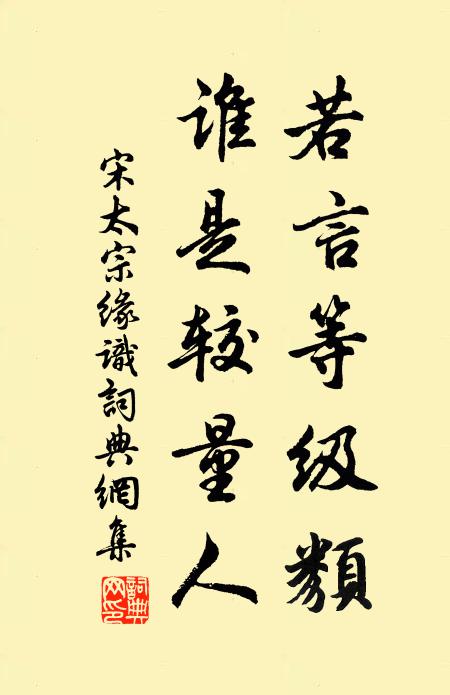 若言等级類
谁是较量人
宋太宗缘識詞典網集
詞典网印